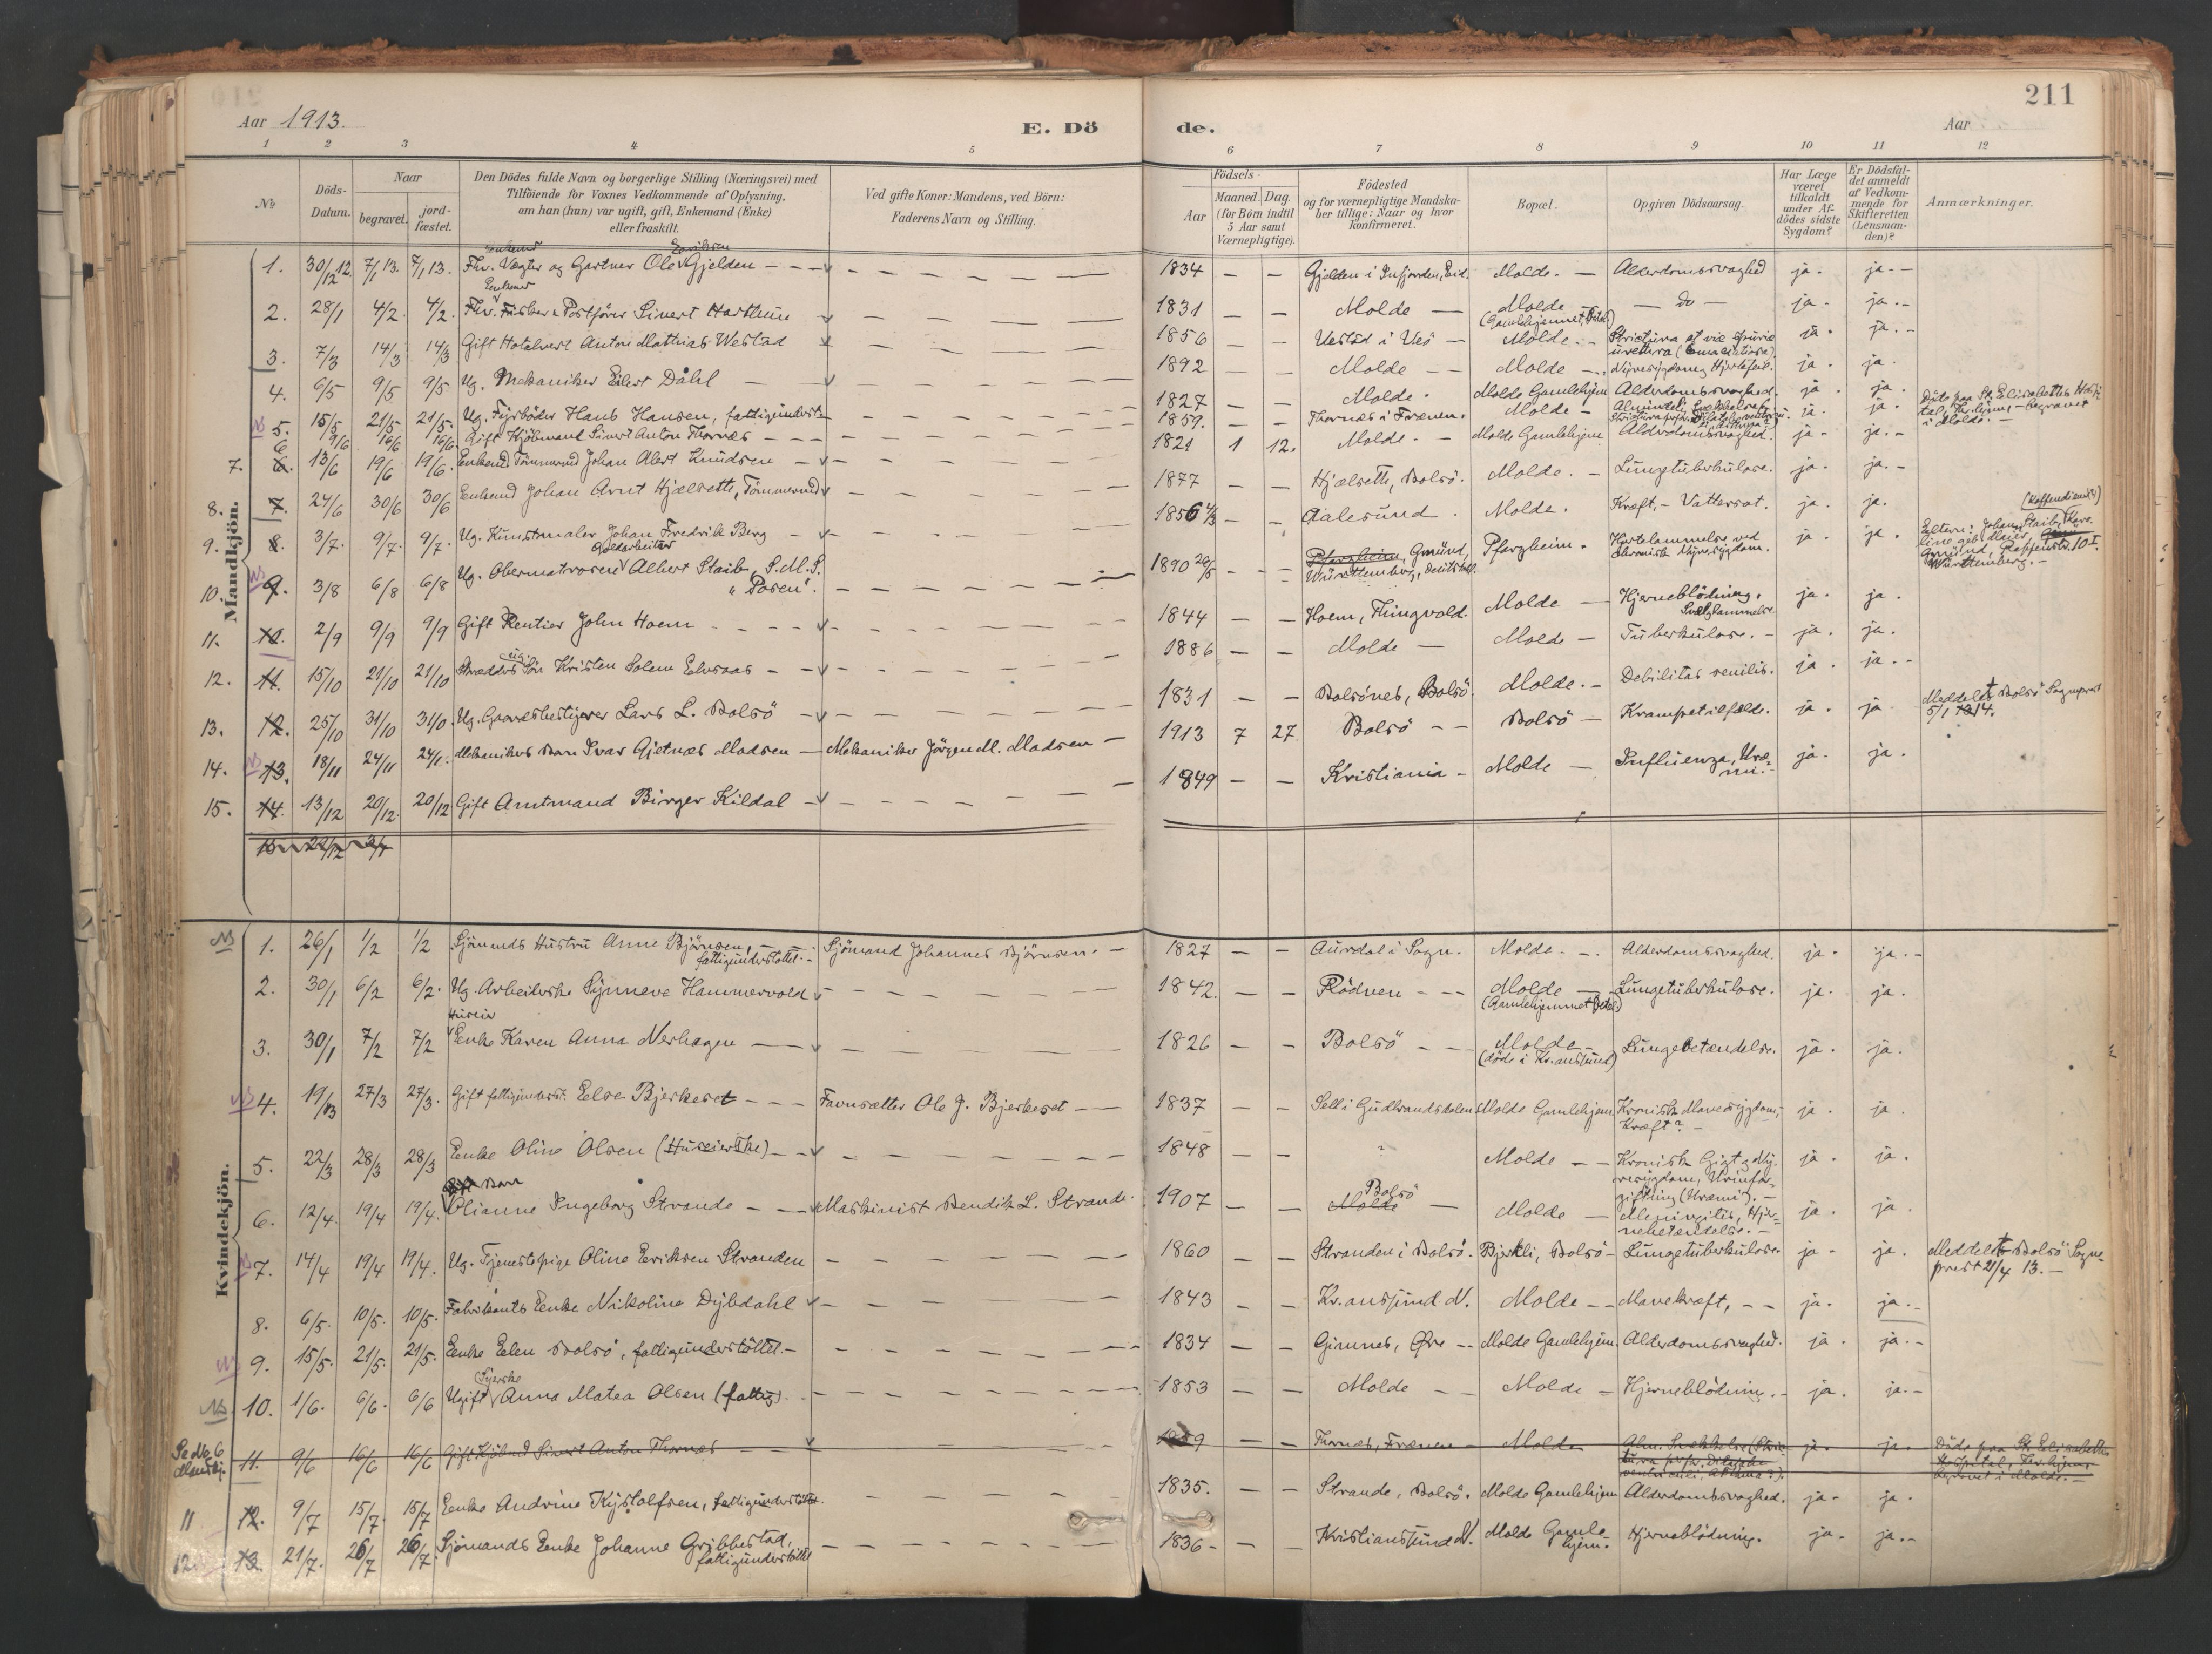 211
Aar 1913.
E. Dö de.
Aar
1 2 3 4 5 6 7 8 9 10 11 12
№
Döds-Datum.
Naar
begravet.
jord-fæstet.
Den Dödes fulde Navn og borgerlige Stilling (Næringsvei) med
Tilföiende for Voxnes Vedkommende af Oplysning,
om han (hun) var ugift, gift, Enkemand (Enke)
eller fraskilt.
Ved gifte Koner: Mandens, ved Börn:
Faderens Navn og Stilling.
Födsels-
Aar
Maaned. Dag.
(for Börn indtil
5 Aar samt
Værnepligtige).
Födested
og for værnepligtige Mandska-
ber tillige: Naar og hvor
konfirmeret.
Bopæl.
Opgiven Dödsaarsag.
Har Læge
været
tilkaldt
under Af-
dödes sidste
Sygdom?
Er Dödsfal-
det anmeldt
af Vedkom-
mende for
Skifteretten
(Lensman-
den)?
Anmærkninger.
Mandkjön.
1. 30/12 12. 7/1 13. 7/1 13. Enkemd Fhv. Vægter og Gartner Ole Eriksen Gjelden 1834 — — Gjelden i Insfjorden, Eid. Molde. — Alderdomssvaghed ja. ja.
2. 28/1 4/2. 4/2. Enkemd Fhv. Fisker & Postförer Sivert Harthun 1831 — — Molde — Molde (Gamlehjemmet, Betel) — do — ja. ja.
3. 7/3 14/3 14/3 Gift Hotelvert Anton Mathias Westad 1856 — — Vestad i Veö — Molde. — ja. ja.
4. 6/5 9/5 9/5 Ug. Mekaniker Eilert Dahl 1892 — — Molde — Molde — Nyresygdom, Hjertefeil. ja. ja.
NB 5. 15/5 21/5 21/5. Ug. Fyrböder Hans Hansen, fattigunderst. 1827 — — Molde. Molde Gamlehjem Alderdomssvaghed. ja. ja.
6 9/6 16/6 16/6. Gift Kjöbmand Sivert Anton Thornæs 1859. — — Thornæs i Frænen. Molde — ja. ja. Döde paa St. Elisabeths Hospi-
tal, Tr.hjem, — begravet
i Molde. —
7. 6. 13/6 19/6 19/6. Enkemd Tömmermd Johan Albert Knudsen 1821 1 12. Molde. — Molde Gamlehjem Alderdomssvaghed. ja. ja.
8. 7. 24/6 30/6 30/6 Enkemd Johan Arnt Hjælsetli, Tömmermd 1877 — — Hjælsetli, Bolsö. Molde. — Lungetuberkulose. ja. ja.
9. 8. 3/7. 9/7. 9/7. Ug. Kunstmaler Johan Fredrik Berg 1856 4/3 — — Aalesund. Molde. Kræft. — Vattersot. ja. ja.
NB 10. 9. 3/8 6/8 6/8 Ug. Obermatrosen Goldarbeiter Albert Staib, S.M.S. "Posen". 1890 20/5 — — Pforzheim, Gmünd, Württemberg, Pforzheim. Hjertelammelse ved kronisk Nyresygdom. ja. ja. Eltern: Johann Staib, (Kassendiener) Karo-
line geb. Maier,
Gmünd,
Württemberg. —
11. 10. 2/9 9/9 9/9 Gift Rentier John Hoem 1844 — — Hoem, Thingvold. Molde — Hjerneblödning. Svælglammelse. ja. ja.
12. 11. 15/10 21/10 21/10 Skrædders Sön ug. Kristen Solem Elvsaas 1886 — — Molde — Molde — Tuberkulose. — ja. ja.
13. 12. 25/10 31/10 31/10. Ug. Gaardbestyrer Lars L. Bolsö 1831 — — Bolsönes, Bolsö. Molde. — Debilitas senilis. ja. ja.
NB 14. 13. 18/11 24/11 24/11. Mekanikers Barn Ivar Gjetnæs Madsen — Mekaniker Jörgen M. Madsen — 1913 7 27 Bolsö — Bolsö — Krampetilfælde. ja. ja. Meddelt Bolsö Sogneprest
5/1 1914.
15. 14. 13/12 20/12. 20/12. Gift Amtmand Birger Kildal 1849 — — Kristiania — Molde — Influenza, Uræ-
mi. — ja. ja.
Kvindekjön.
NB 1. 26/1 1/2 1/2 Sjömands Hustru Anne Björnsen, fattigunderstöttet. — Sjömand Johannes Björnsen. — 1827 — — Aurdal i Sogn. Molde. — Alderdomssvaghed. ja. ja.
2. 30/1 6/2 6/2. Ug. Arbeiderske Synneve Hammervold 1842. — — Rödven — Molde (Gamlehjemmet Betel) — Lungetuberkulose. ja. ja.
3. 30/1 7/2 7/2 Enke Karen Anna Nerhagen 1826 — — Bolsö — Molde — (döde i Kr.anssund) Lungebetændelse. ja. ja.
NB 4. 19/3 27/3 27/3. Gift fattigunderst. Else Bjerkeset — Favnsætter Ole J. Bjerkeset — 1837 — — Sell i Gudbrandsdalen Molde Gamlehjem. Kronisk Mavesygdom,
Kræft? — ja. ja.
5. 22/3 28/3 28/3 Enke Oline Olsen (Huseierske) 1848 — — " Molde — Kronisk Gigt & Ny-
resygdom, Urinfor-
giftning (Uræmi). — ja. ja.
6. 12/4. 19/4 19/4. Barn Olianne Ingeborg Strande — Maskinist Bendik L. Strande. 1907 — — Bolsö Molde — Molde — Meningitis, Hjer-
nebetændelse. — ja. ja.
NB 7. 14/4 19/4 19/4. Ug. Tjenestepige Oline Eriksen Stranden 1860 — — Stranden i Bolsö. Bjerkli, Bolsö — Lungetuberkulose. ja. ja. Meddelt Bolsö Sogne-
prest 21/4 13. —
8. 6/5. 10/5. 10/5. Fabrikants Enke Nikoline Dybdahl 1843 — — Kr.anssund N. Molde — Mavekræft, — ja. ja.
NB 9. 15/5. 21/5. 21/5. Enke Elen Bolsö, fattigunderstöttet. — 1834 — — Gimnes, Øre — Molde Gamlehjem. Alderdomssvaghed. ja. ja.
NB. 10. 1/6. 6/6. 6/6 Ugift Syerske Anna Matea Olsen (fattig). 1853 — — Molde — Molde — Hjerneblödning. — ja. ja.
Se No 6 Mandkj. 11. 9/6 16/6 16/6 Gift Kjöbmd Sivert Anton Thornæs 1859 Thornæs, Frænen — Molde ja. ja. Döde paa St. Elisabeths
Hospital, Tr.hjem,
begravet i Molde. —
11 12. 9/7 15/7. 15/7 Enke Andrine Kystolfsen, fattigunderstöttet. 1835. — — Strande, Bolsö. Molde Gamlehjem Alderdomssvaghed. ja. ja.
12 13. 21/7. 26/7 26/7 Sjömands Enke Johanne Gribbestad, fattigunderstöttet 1836 — — Kristianssund N. Molde Gamle-
hjem. Hjerneblödning. ja. ja.